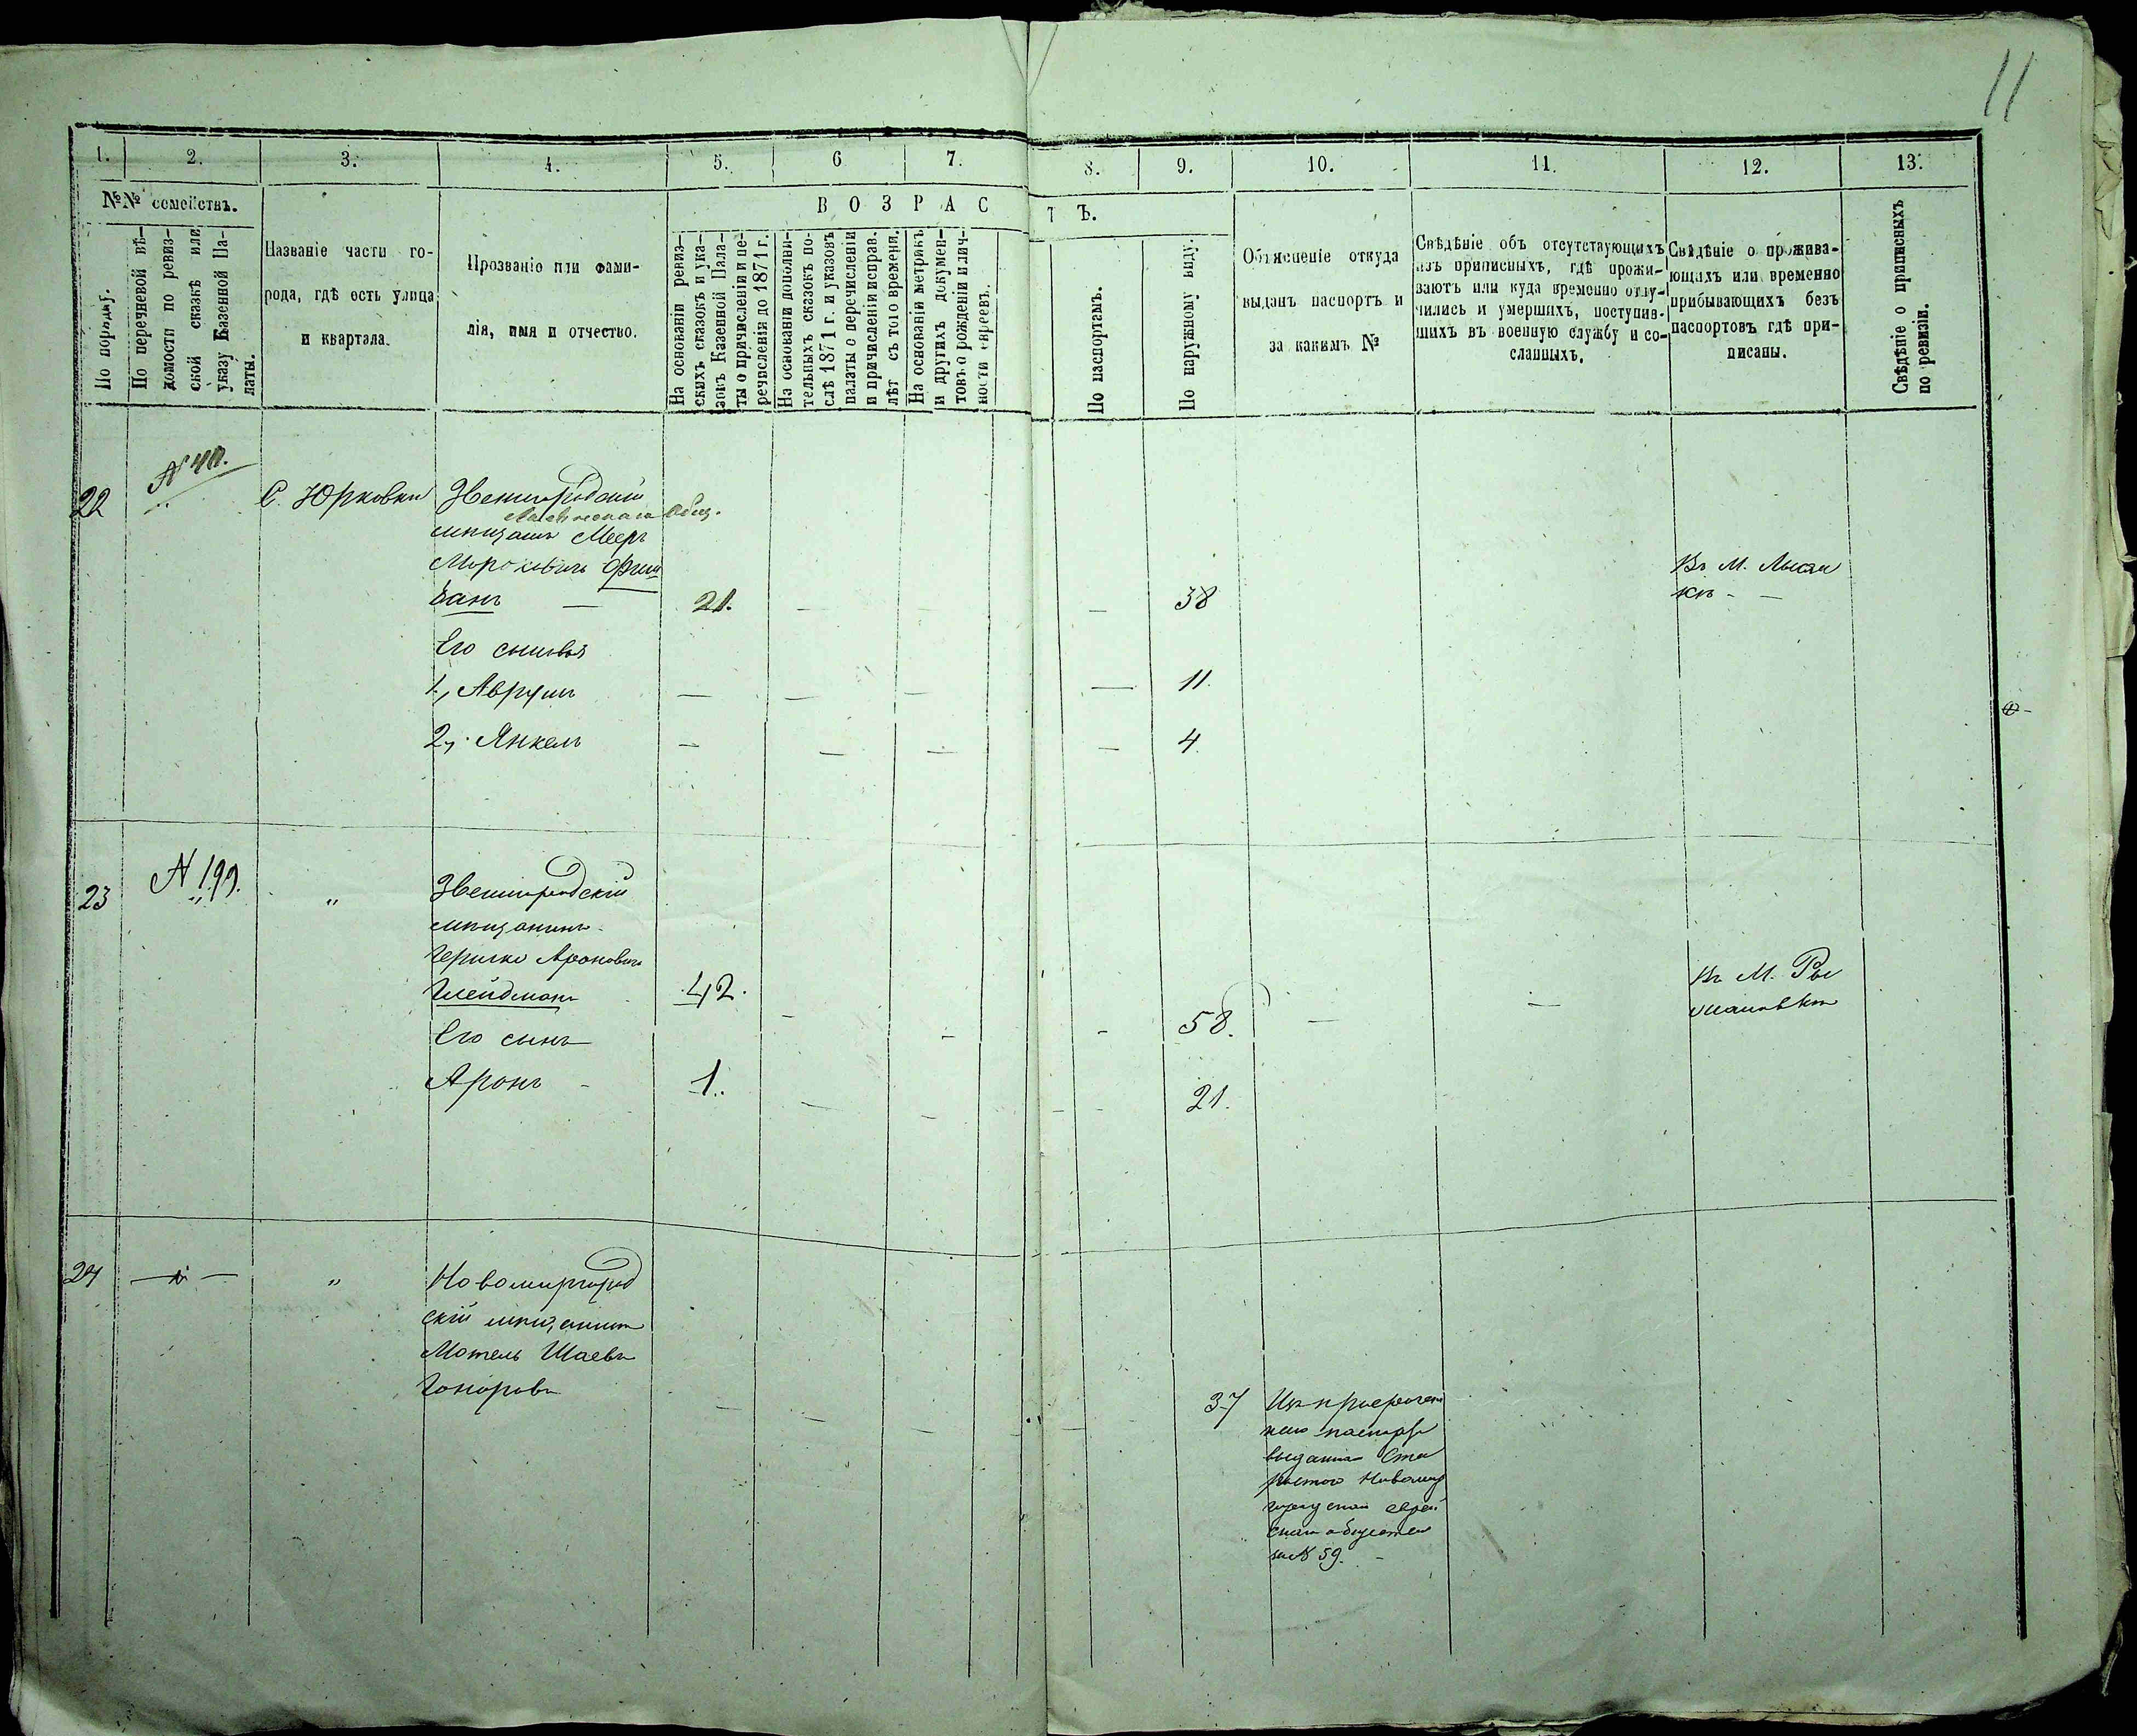 11
1. 2. 3. 4. 5. 6 7. 8. 9. 10. 11. 12. 13.
№№ семействъ.
В О З Р А С Т Ъ.
По порядку.
По перечневой вѣ-
домости по ревиз-
ской сказкѣ или
указу Казенной Па-
латы.
Названіе части го-
рода, гдѣ есть улица
и квартала.
Прозваніе или фами-
лія, имя и отчество.
На основаніи ревиз-
скихъ сказокъ и ука-
зовъ Казенной Пала-
ты о причисленіи и пе-
речисленіи до 1871 г.
На основаніи дополни-
тельныхъ сказокъ по-
слѣ 1871 г. и указовъ
палаты о перечисленіи
и причисленіи исправ.
лѣт съ того времени.
На основаніи метрикъ
и других докумен-
товъ о рожденіи и лич-
ности евреевъ.
По паспортамъ.
По наружному виду.
Объясненіе откуда
выданъ паспортъ и
за какимъ №
Свѣдѣніе объ отсутствующихъ
изъ приписныхъ, гдѣ прожи-
ваютъ или куда временно отлу-
чились и умершихъ, поступив-
шихъ въ военную службу и со-
сланныхъ.
Свѣдѣніе о прожива-
ющихъ или временно
прибывающихъ безъ
паспортовъ гдѣ при-
писаны.
Свѣдѣніе о приписныхъ
по ревизіи.
22
С. Юрковка
Звенигородскій
Общ.
мѣщанинъ Мееръ
21. 38
Въ М. Лысян
кѣ
Его сыновья
1, Аврумъ 11.
2, Янкель 4.
23 N 199. "
Звенигородскій
мѣщанинъ
Гершко Ароновичъ
Гнейдманъ 42. 58.
Въ М. Ры
жановкѣ
Его сынъ
Аронъ 1. 21.
24 "
Новомиргород
скій мѣщанинъ
Мотель Шаевъ
Гоноровъ 37
паспорта
выданна Ста
ростою Новомир
городскаго еврей
скаго общества
за N 59.